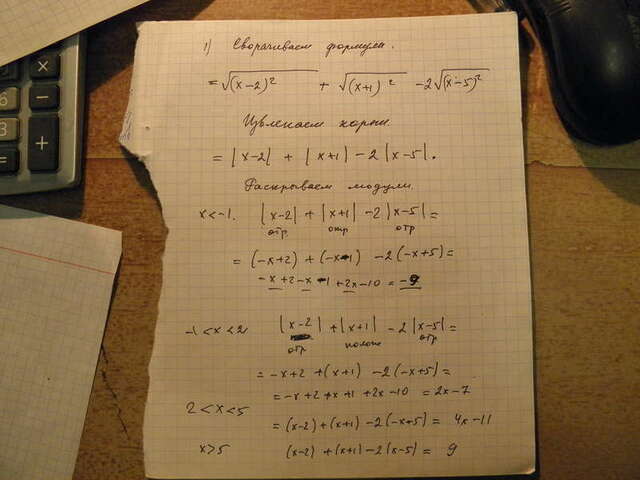 1) Сворачиваем формулы.
= √(x-2)² + √(x+1)² -2√(x-5)²
Извлекаем корни
= |x-2| + |x+1| - 2|x-5|.
Раскрываем модули.
x<-1. |x-2| + |x+1| -2|x-5| =
отр отр отр
= (-x+2) + (-x-1) -2(-x+5) =
-x+2-x-1+2x-10 = -9
-1<x<2 |x-2| + |x+1| -2|x-5| =
отр полож отр
= -x+2 +(x+1) -2(-x+5) =
= -x+2+x+1+2x-10 = 2x-7
2<x<5
= (x-2)+(x+1)-2(-x+5) = 4x-11
x>5 (x-2) +(x+1)-2(x-5) = 9
× - + =